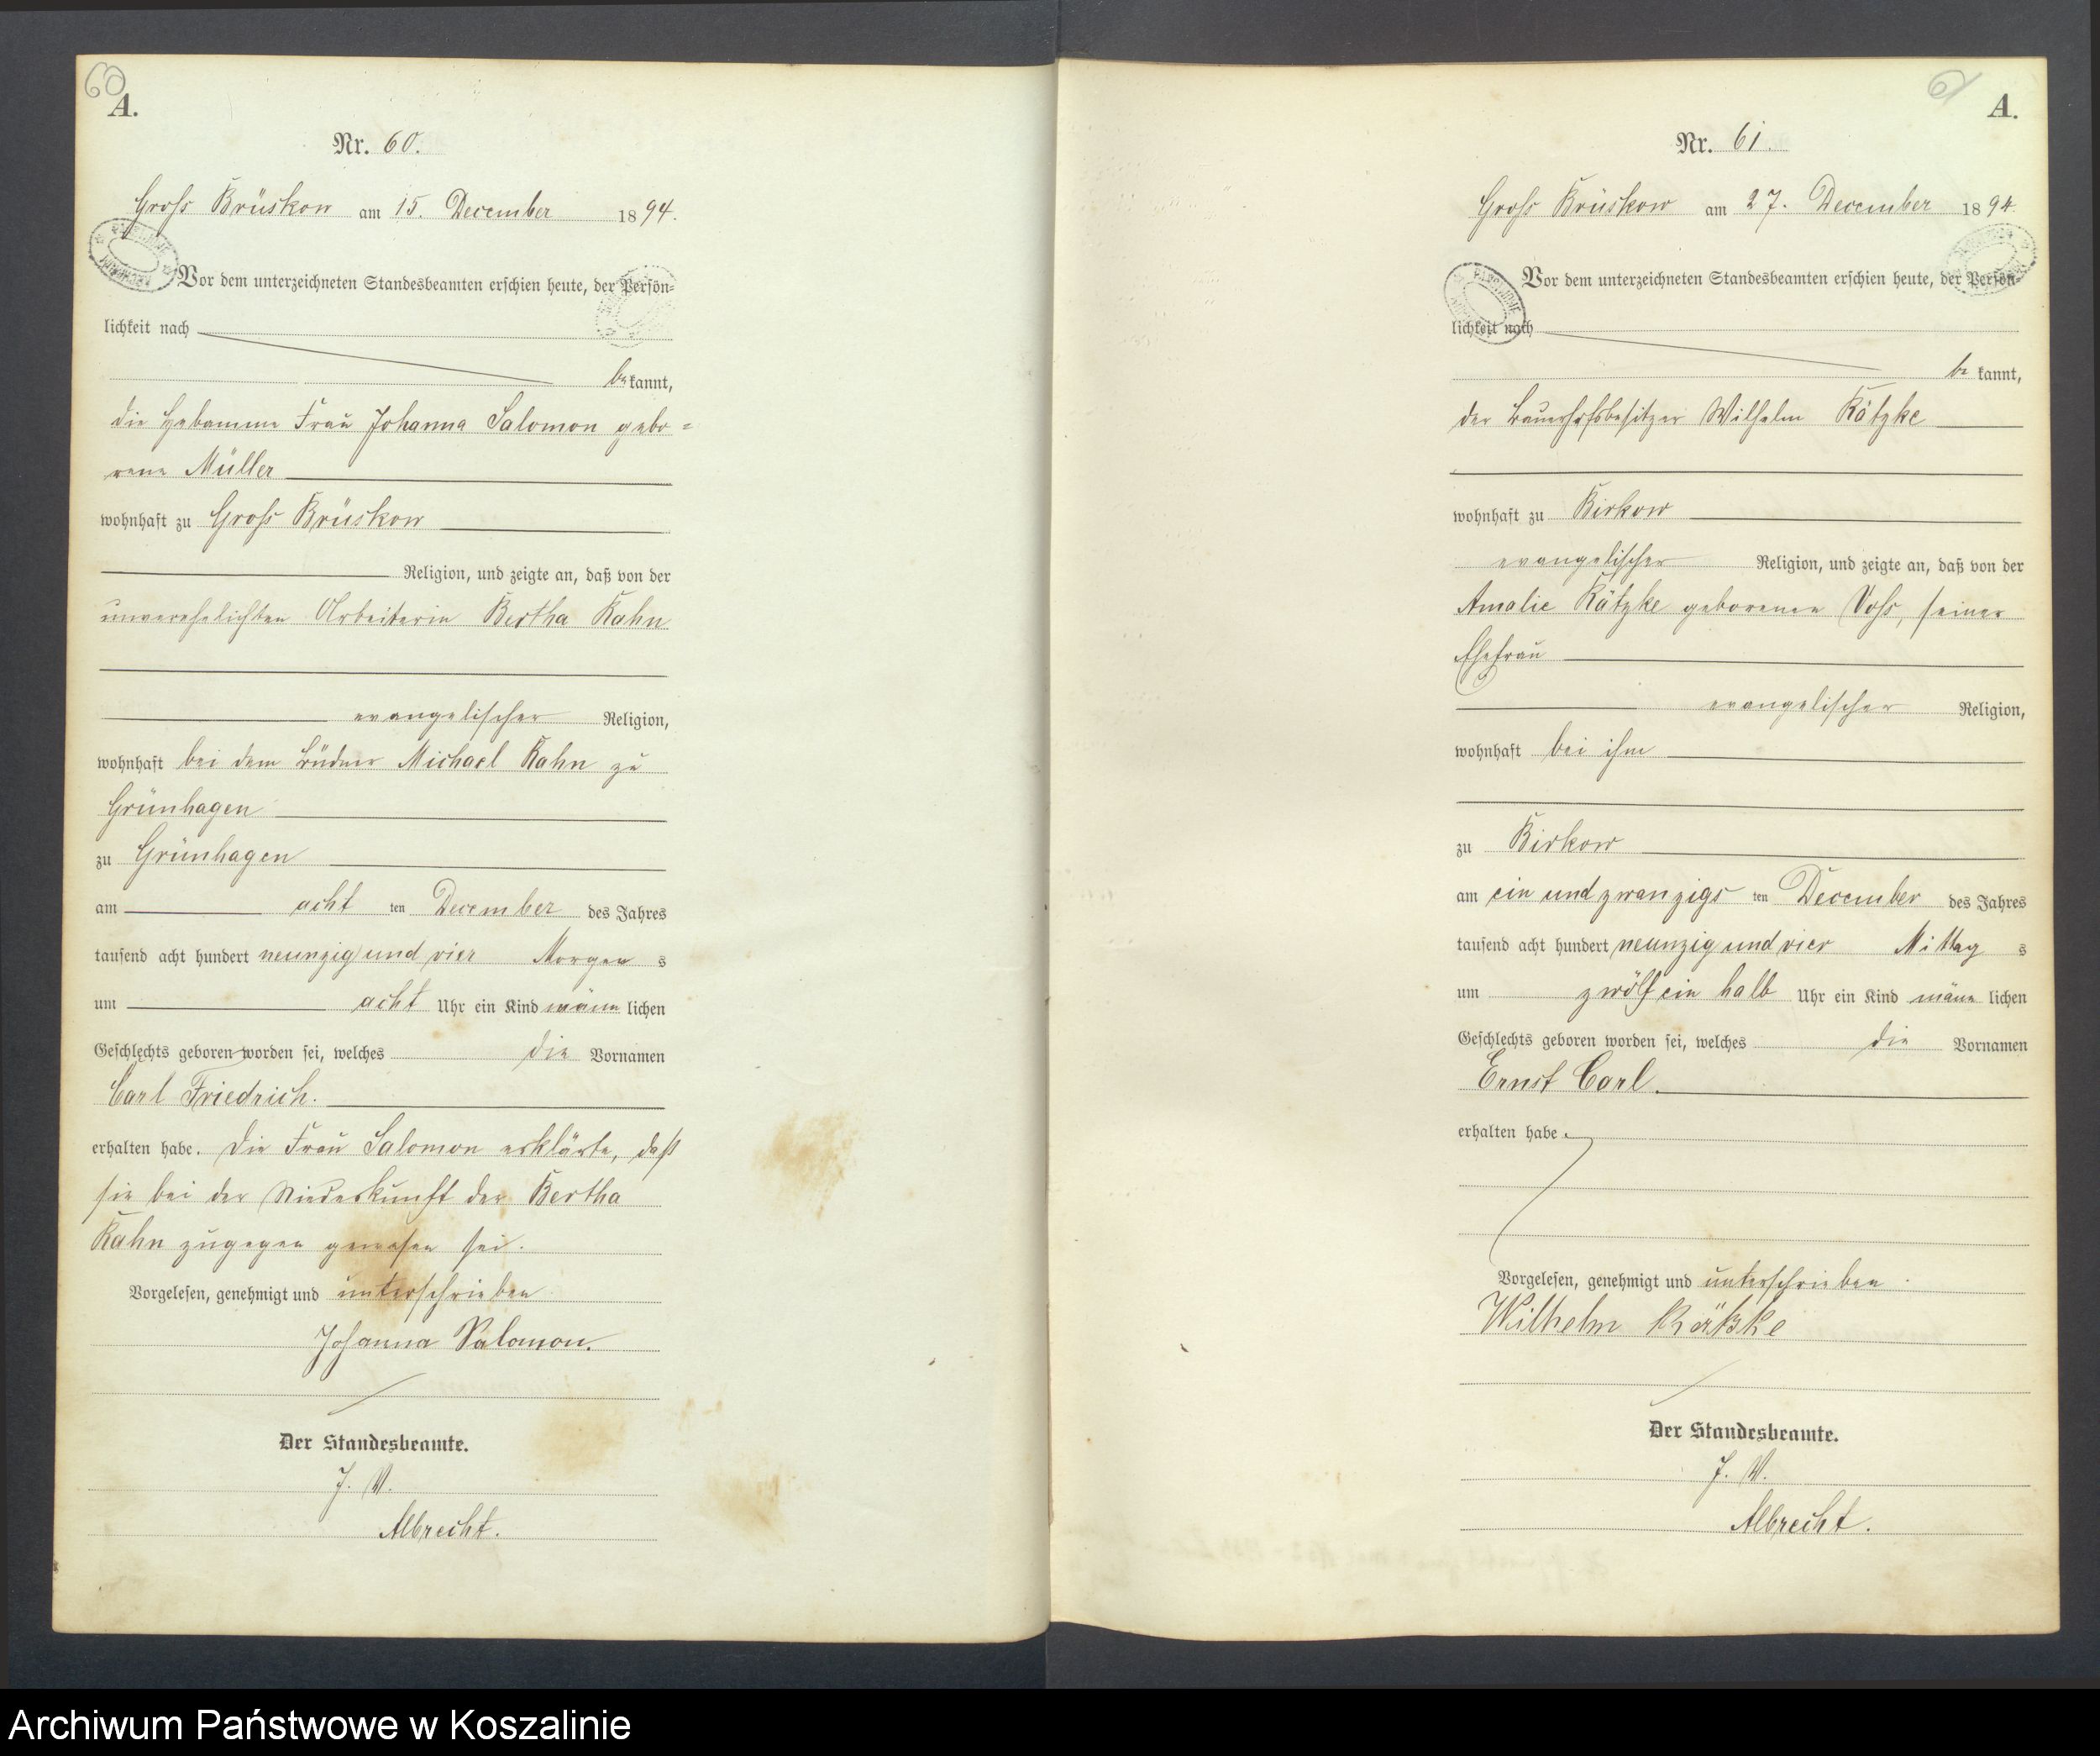 60
A.
Nr. 60.
Gross Brüskow am 15. December 1894.
Vor dem unterzeichneten Standesbeamten erschien heute, der Persön=
lichkeit nach
bekannt,
die Hebamme Frau Johanna Salomon gebo=
rene Müller
wohnhaft zu Gross Brüskow
Religion, und zeigte an, daß von der
unverehelichten Arbeiterin Bertha Kahn
evangelischer Religion,
wohnhaft bei dem Büdner Michael Kahn zu
Grünhagen
zu Grünhagen
am acht ten December des Jahres
tausend acht hundert neunzig und vier Morgens
um acht Uhr ein Kind männlichen
Geschlechts geboren worden sei, welches die Vornamen
Carl Friedrich.
erhalten habe. Die Frau Salomon erklärte, daß
sie bei der Niederkunft der Bertha
Kahn zugegen gewesen sei.
Vorgelesen, genehmigt und unterschrieben
Johanna Salomon.
Der Standesbeamte.
J. V.
Albrecht.
61
A.
Nr. 61.
Gross Brüskow am 27. December 1894
Vor dem unterzeichneten Standesbeamten erschien heute, der Persön-
lichkeit nach
be kannt,
der Bauerhofsbesitzer Wilhelm Kätzke
wohnhaft zu Birkow
evangelischer Religion, und zeigte an, daß von der
Amalie Kätzke geborenen Voss, seiner
Ehefrau
evangelischer Religion,
wohnhaft bei ihm
zu Birkow
am ein und zwanzigs ten December des Jahres
tausend acht hundert neunzig und vier Mittag s
um zwölf ein halb Uhr ein Kind männ lichen
Geschlechts geboren worden sei, welches die Vornamen
Ernst Carl.
erhalten habe.
Vorgelesen, genehmigt und unterschrieben.
Wilhelm Kätzke
Der Standesbeamte.
J. V.
Albrecht.
Archiwum Państwowe w Koszalinie